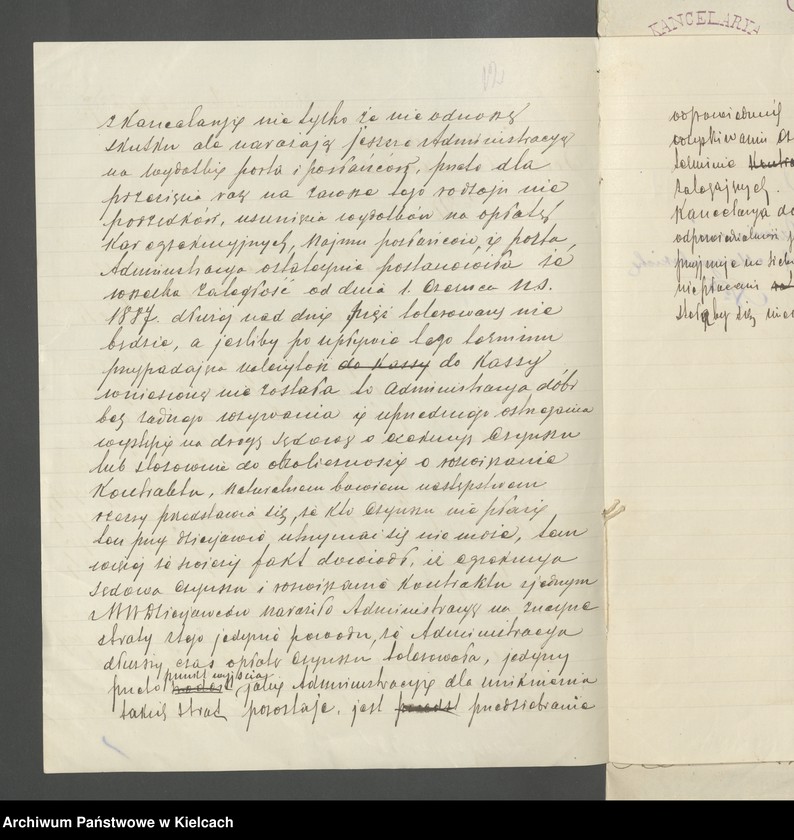 z Kancelaryję nie tylko że nie odnoszę
skutku ale narażają jeszcze Administracyę
na wydatki porta i posłańców, przeto dla
przecięcia raz na zawsze tego rodzaju nie
porządków, usunięcia wydatków na opłatę
Kar egzekucyjnych, najmu posłańców, i porta
Administracya ostatecznie postanowiła że
wszelka zaległość od dnia 1. Czerwca n.s.
1887. dłużej nad dnię pięć tolerowaną nie
będzie, a jeśliby po upływie tego terminu
przypadająca należytość do Kassy do Kassy
wniesioną nie została to Administracya dóbr
bez żadnego wzywania i uprzedniego ostrzeżenia
wystąpi na drogę sądową o exekucyę Czynszu
lub stosownie do okoliczności o rozwiązanie
Kontraktu, naturalnem bowiem następstwem
rzeczy przedstawia się, że kto Czynszu nie płaci
ten przy dzierżawie utrzymać się nie może, tem
więcej że świeży fakt dowiódł, iż egzekucya
Sądowa Czynszu i rozwiązanie Kontraktu z jednym
z WW Dzierżawców naraziło Administracyę na znaczne
straty z tego jedynie powodu, że Administracya
dłuższy czas opłatę Czynszu tolerowała, jedyny
punkt wyjścia
przeto jaki Administracyi dla uniknienia
takich strat pozostaje, jest przedsiębranie
KANCELARYA
odpowiednich
terminie
zalegających.
Kancelarya
odpowiedzialność
przyjmuje na siebie
Archiwum Państwowe w Kielcach